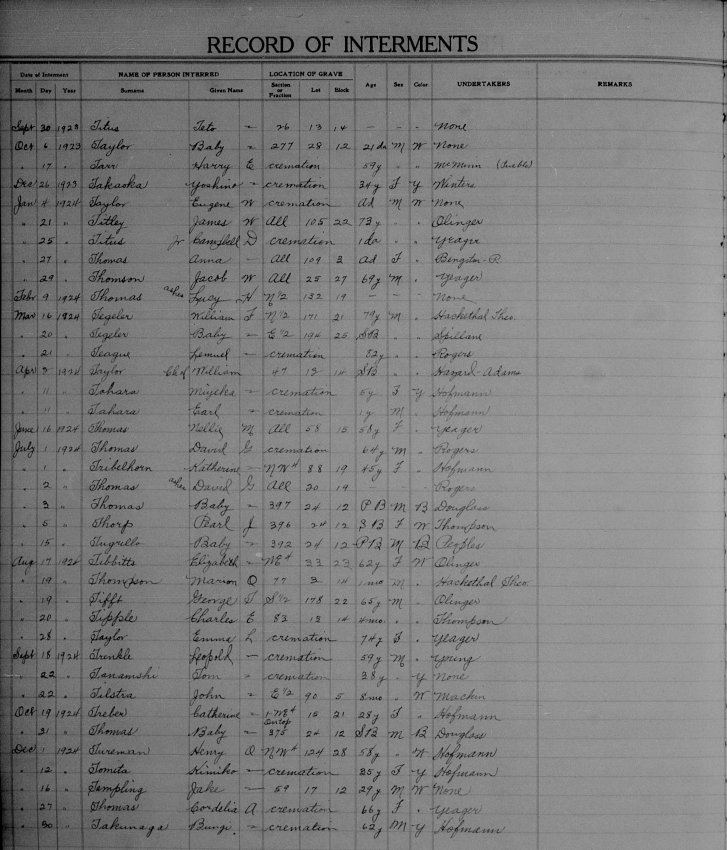 RECORD OF INTERMENTS
Date of Interment NAME OF PERSON INTERRED LOCATION OF GRAVE Age Sex Color UNDERTAKERS REMARKS
Month Day Year Surname Given Name Section or Fraction Lot Block
Sept 30 1923 Titus Teto - 26 13 14 - - - None
Oct 6 1923 Taylor Baby - 277 28 12 21 da M W None
" 17 " Tarr Harry E cremation 59y " " McMinn
Dec 26 1923 Takaoka Yoshino - cremation 34y F Y Winters
Jan 4 1924 Taylor Eugene W cremation ad M W None
" 21 " Titley James W All 105 22 73y " " Olinger
" 25 " Titus Jr Campbell D cremation 1 da " " Yeager
" 27 " Thomas Anna - All 109 3 ad F " Bengston-R.
" 29 " Thomson Jacob W All 25 27 69y M " Yeager
Febr 9 1924 Thomas ashes Lucy H N 1/2 132 19 - - - None
Mar 16 1924 Tegeler William F N 1/2 171 21 79y M " Hackethal Theo.
" 20 " Tegeler Baby - E 1/2 194 25 SB " " Spillane
" 21 " Teague Lemuel - cremation 82y " " Rogers
Apr 8 1924 Taylor Ch of William 47 13 14 SB " " Hazard-Adams
" 11 " Tahara Miyeka - cremation 5y F Y Hofmann
" 11 " Tahara Earl - cremation 1y M " Hofmann
June 16 1924 Thomas Nellie M All 58 15 58y F " Yeager
July 1 1924 Thomas David G cremation 64y M " Rogers
" 1 " Tribelhorn Katherine - NW4 88 19 45y F " Hofmann
" 2 " Thomas ashes David G All 30 19 - - Rogers
" 3 " Thomas Baby - 397 24 12 PB M B Douglass
" 5 " Thorp Pearl J 396 24 12 SB F W Thompson
" 15 " Tugrillo Baby - 392 24 12 PB M B Peoples
Aug 17 1924 Tibbitts Elizabeth - NE4 33 23 62y F W Olinger
" 19 " Thompson Marion O 77 3 14 1 mo M " Hackethal Theo.
" 19 " Tifft George T S 1/2 178 22 65y M " Olinger
" 20 " Tipple Charles E 83 13 14 4 mo " " Thompson
" 28 " Taylor Emma L cremation 74y F " Yeager
Sept 18 1924 Trenkle Leopold - cremation 59y M " Young
" 22 " Tanamshi Tom " cremation 38y " Y None
" 22 " Tilstra John - E 1/2 90 5 8 mo " W Mackin
Oct 19 1924 Treber Catherine - 1-NE4 on top 15 21 28y F " Hofmann
" 31 " Thomas Baby - 375 24 12 SB M B Douglass
Dec 1 1924 Tureman Henry O NW4 124 28 58y " W Hofmann
" 12 " Tomita Kimiko - cremation 35y F Y Hofmann
" 16 " Templing Jake - 59 17 12 29y M W None
" 27 " Thomas Cordelia A cremation 66y F " Yeager
" 30 " Takunaga Bungi - cremation 62y M Y Hofmann